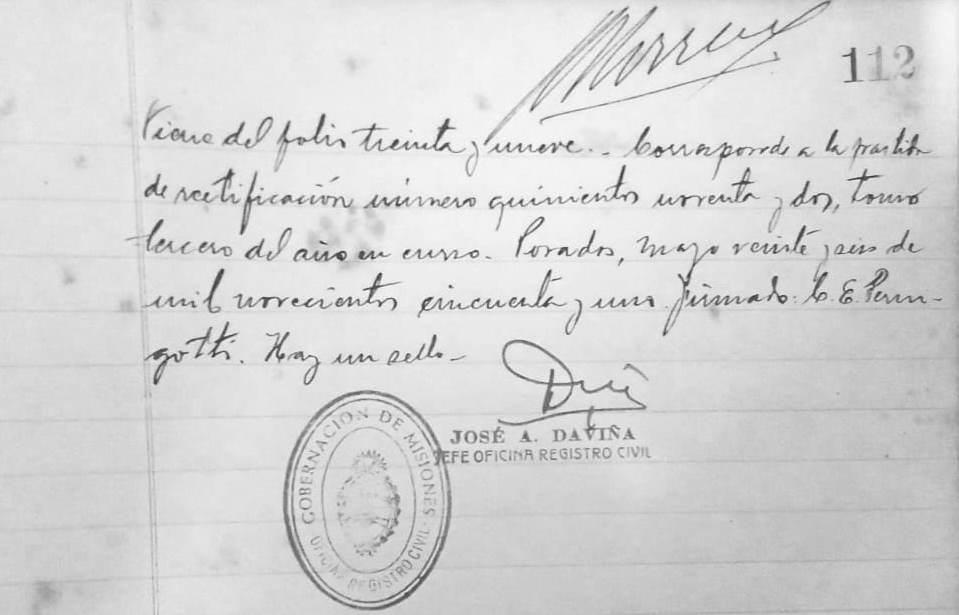 112
Viene del folio treinta y nueve.- Corresponde a la partida
de rectificación número quinientos noventa y dos, tomo
tercero del año en curso. Posadas, mayo veinte y seis de
mil novecientos cincuenta y uno. Firmado: C. E. Perin-
gotti. Hay un sello-
JOSÉ A. DAVIÑA
JEFE OFICINA REGISTRO CIVIL
GOBERNACION DE MISIONES
OFICINA REGISTRO CIVIL